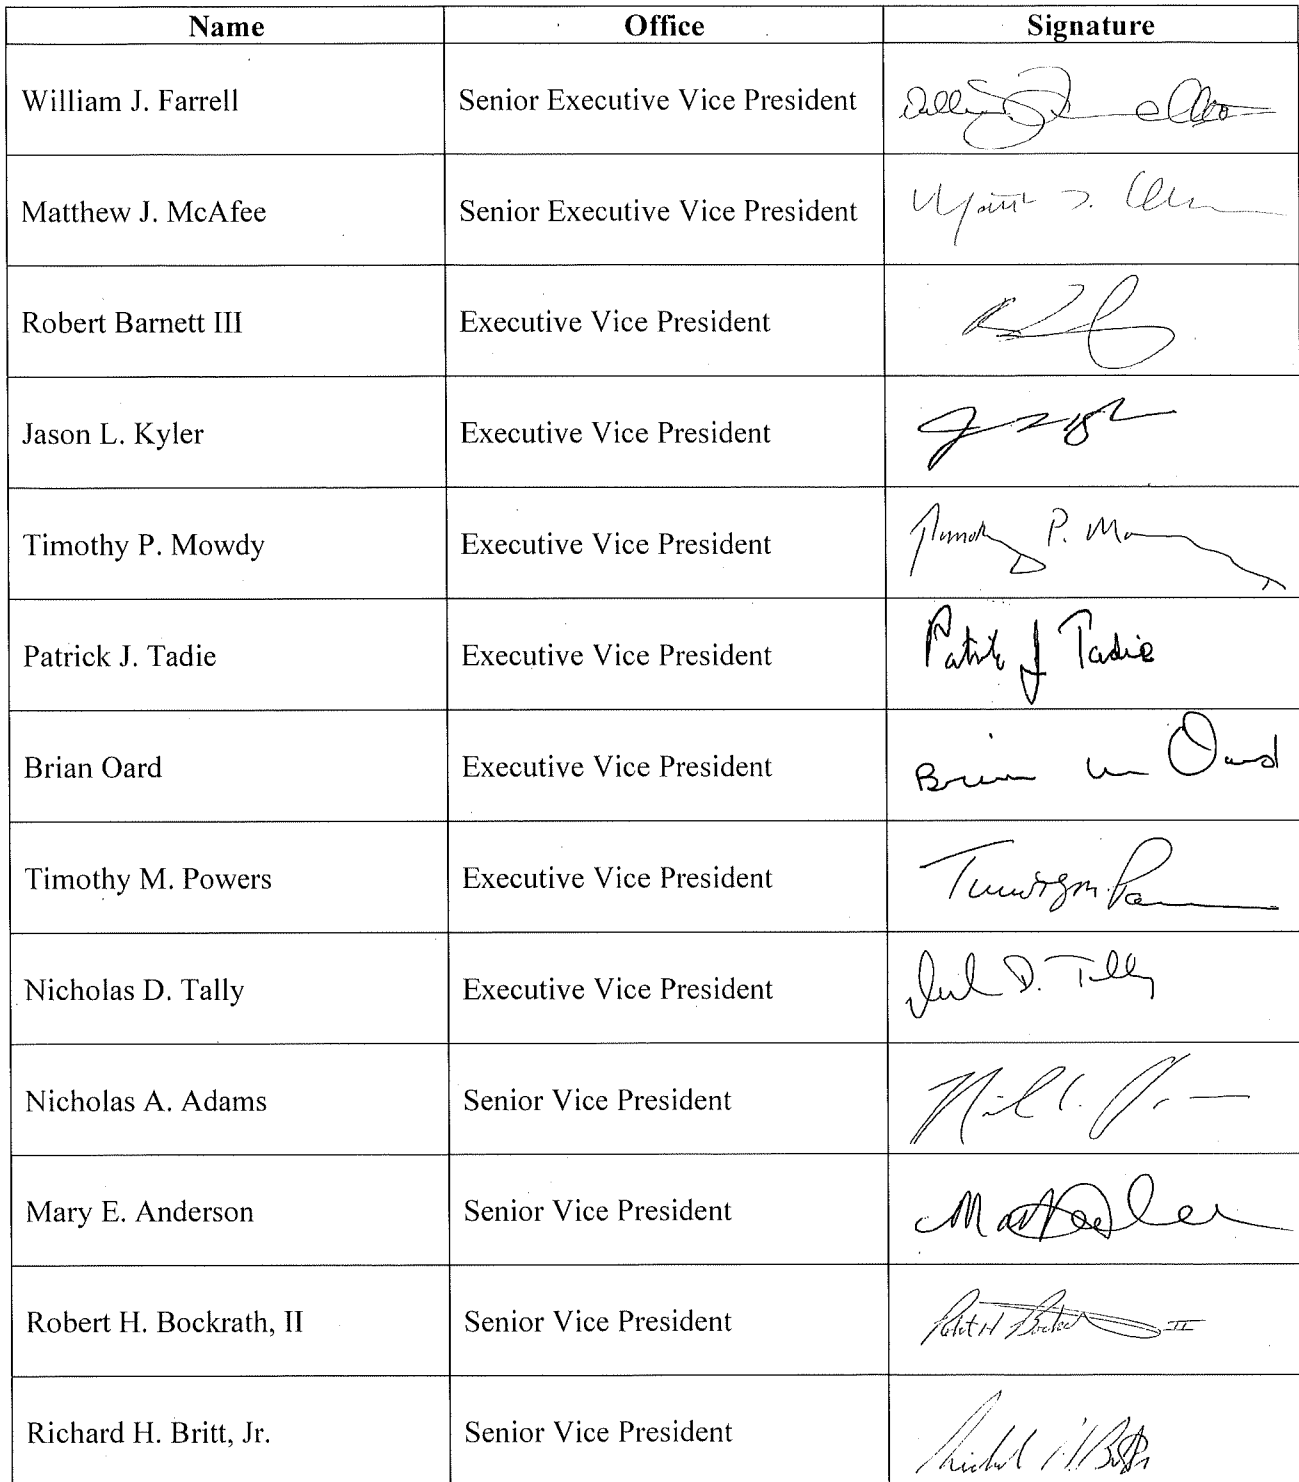 Name Office Signature
William J. Farrell Senior Executive Vice President
Matthew J. McAfee Senior Executive Vice President
Robert Barnett III Executive Vice President
Jason L. Kyler Executive Vice President
Timothy P. Mowdy Executive Vice President Timothy P. M
Patrick J. Tadie Executive Vice President Patrick J Tadie
Brian Oard Executive Vice President Brian m Oard
Timothy M. Powers Executive Vice President
Nicholas D. Tally Executive Vice President D. Tally
Nicholas A. Adams Senior Vice President
Mary E. Anderson Senior Vice President
Robert H. Bockrath, II Senior Vice President Robert H Bockrath II
Richard H. Britt, Jr. Senior Vice President